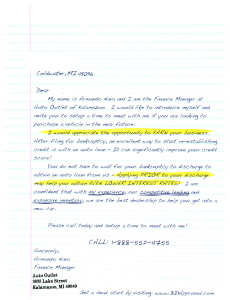 Coldwater, MI 49036
Dear
My name is Armando Kias and I am the Finance Manager at
Auto Outlet of Kalamazoo. I would like to introduce myself and
invite you to setup a time to meet with me if you are looking to
purchase a vehicle in the near future.
I would appreciate the opportunity to EARN your business
After filing for bankruptcy, an excellent way to start re-establishing
credit is with an auto loan - It can significantly improve your credit
score!
You do not have to wait for your bankruptcy to discharge to
obtain an auto loan from us - Applying PRIOR to your discharge
may help you obtain MUCH LOWER INTEREST RATES! I am
confident that with my experience, our competitive lending and
extensive inventory, we are the best dealership to help you get into a
new car.
Please call today and setup a time to meet with me!
CALL: 1-888-552-4755
Sincerely,
Armando
Finance Manager
Auto Outlet
Lake Street
Kalamazoo, MI
Get a head start by visiting: www.